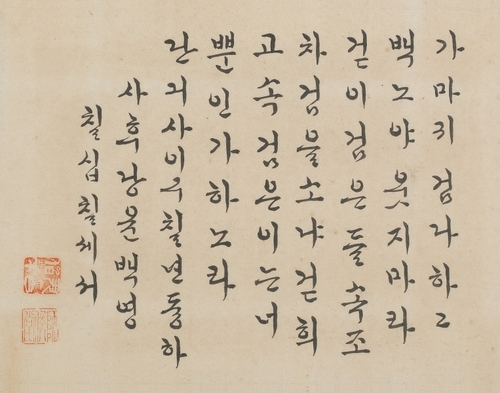 가마긔 검다하고
백노야 웃지마라
걷이 검은들 속조
차 검을소냐 걷희
고 속 검은이는 너
뿐인가 하노라
단긔사이구칠년동하
사후당윤백영
칠십칠세서